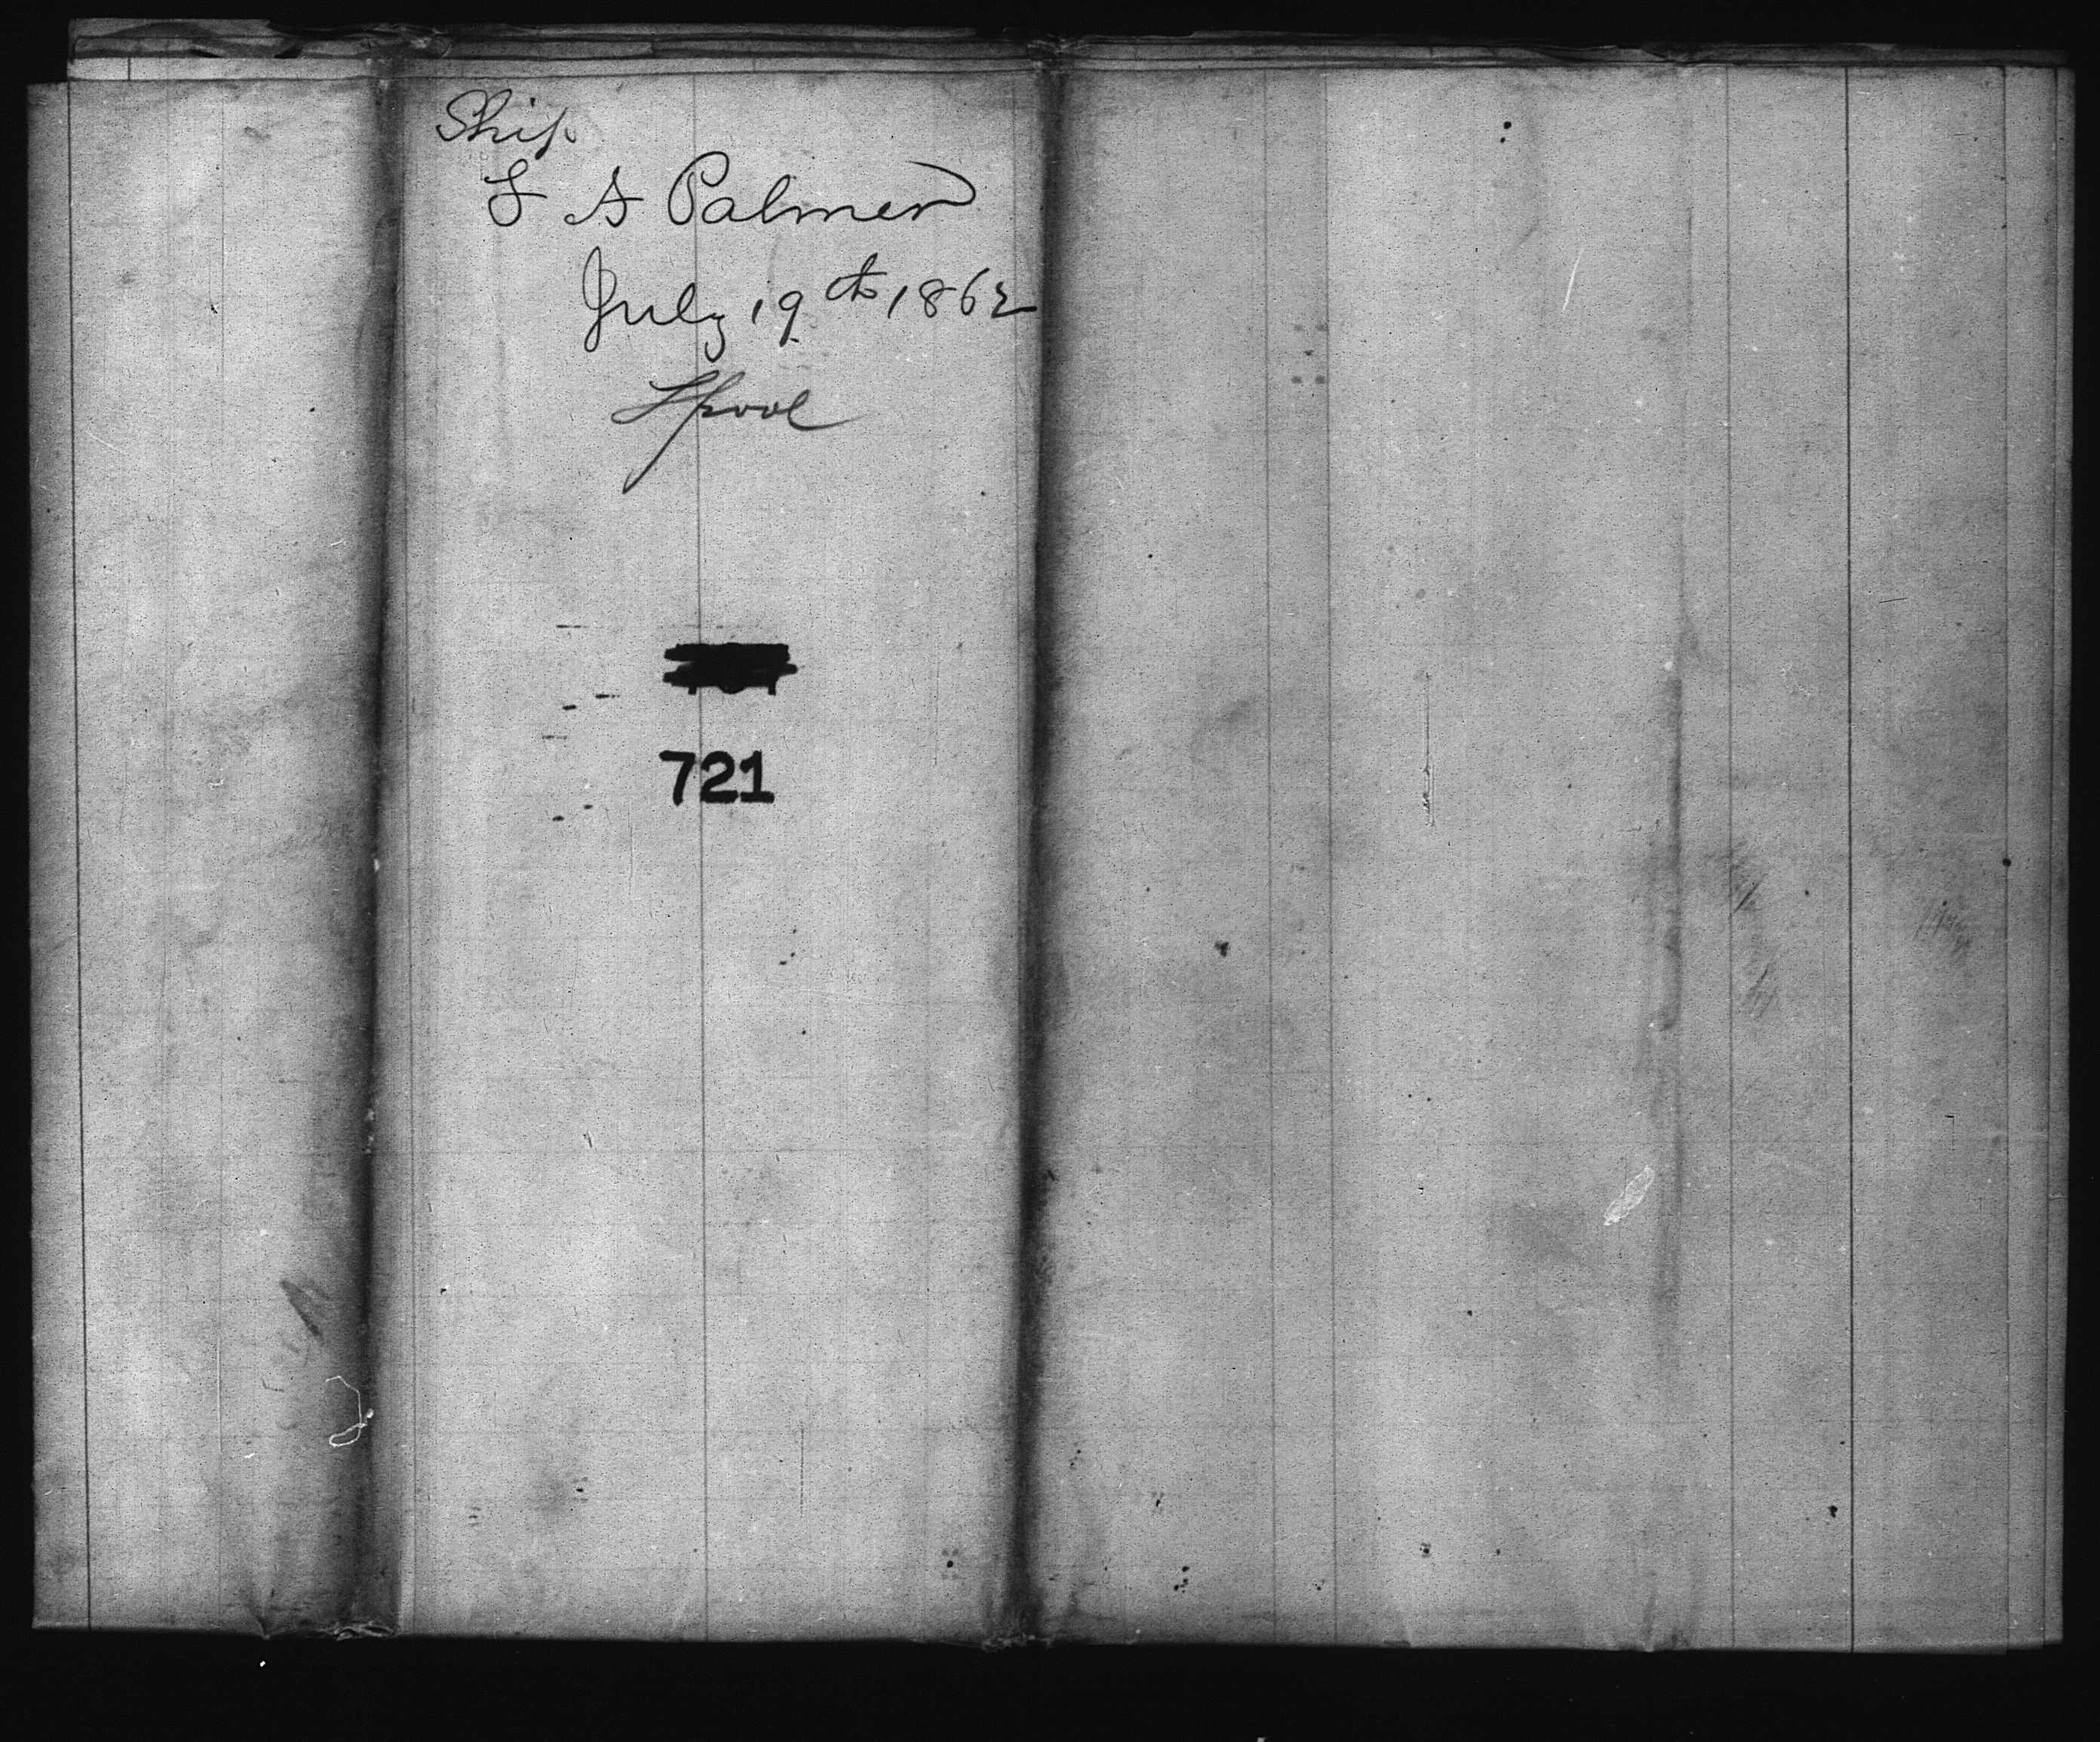 Ship
F A Palmer
July 19th 1862
Lpool
721